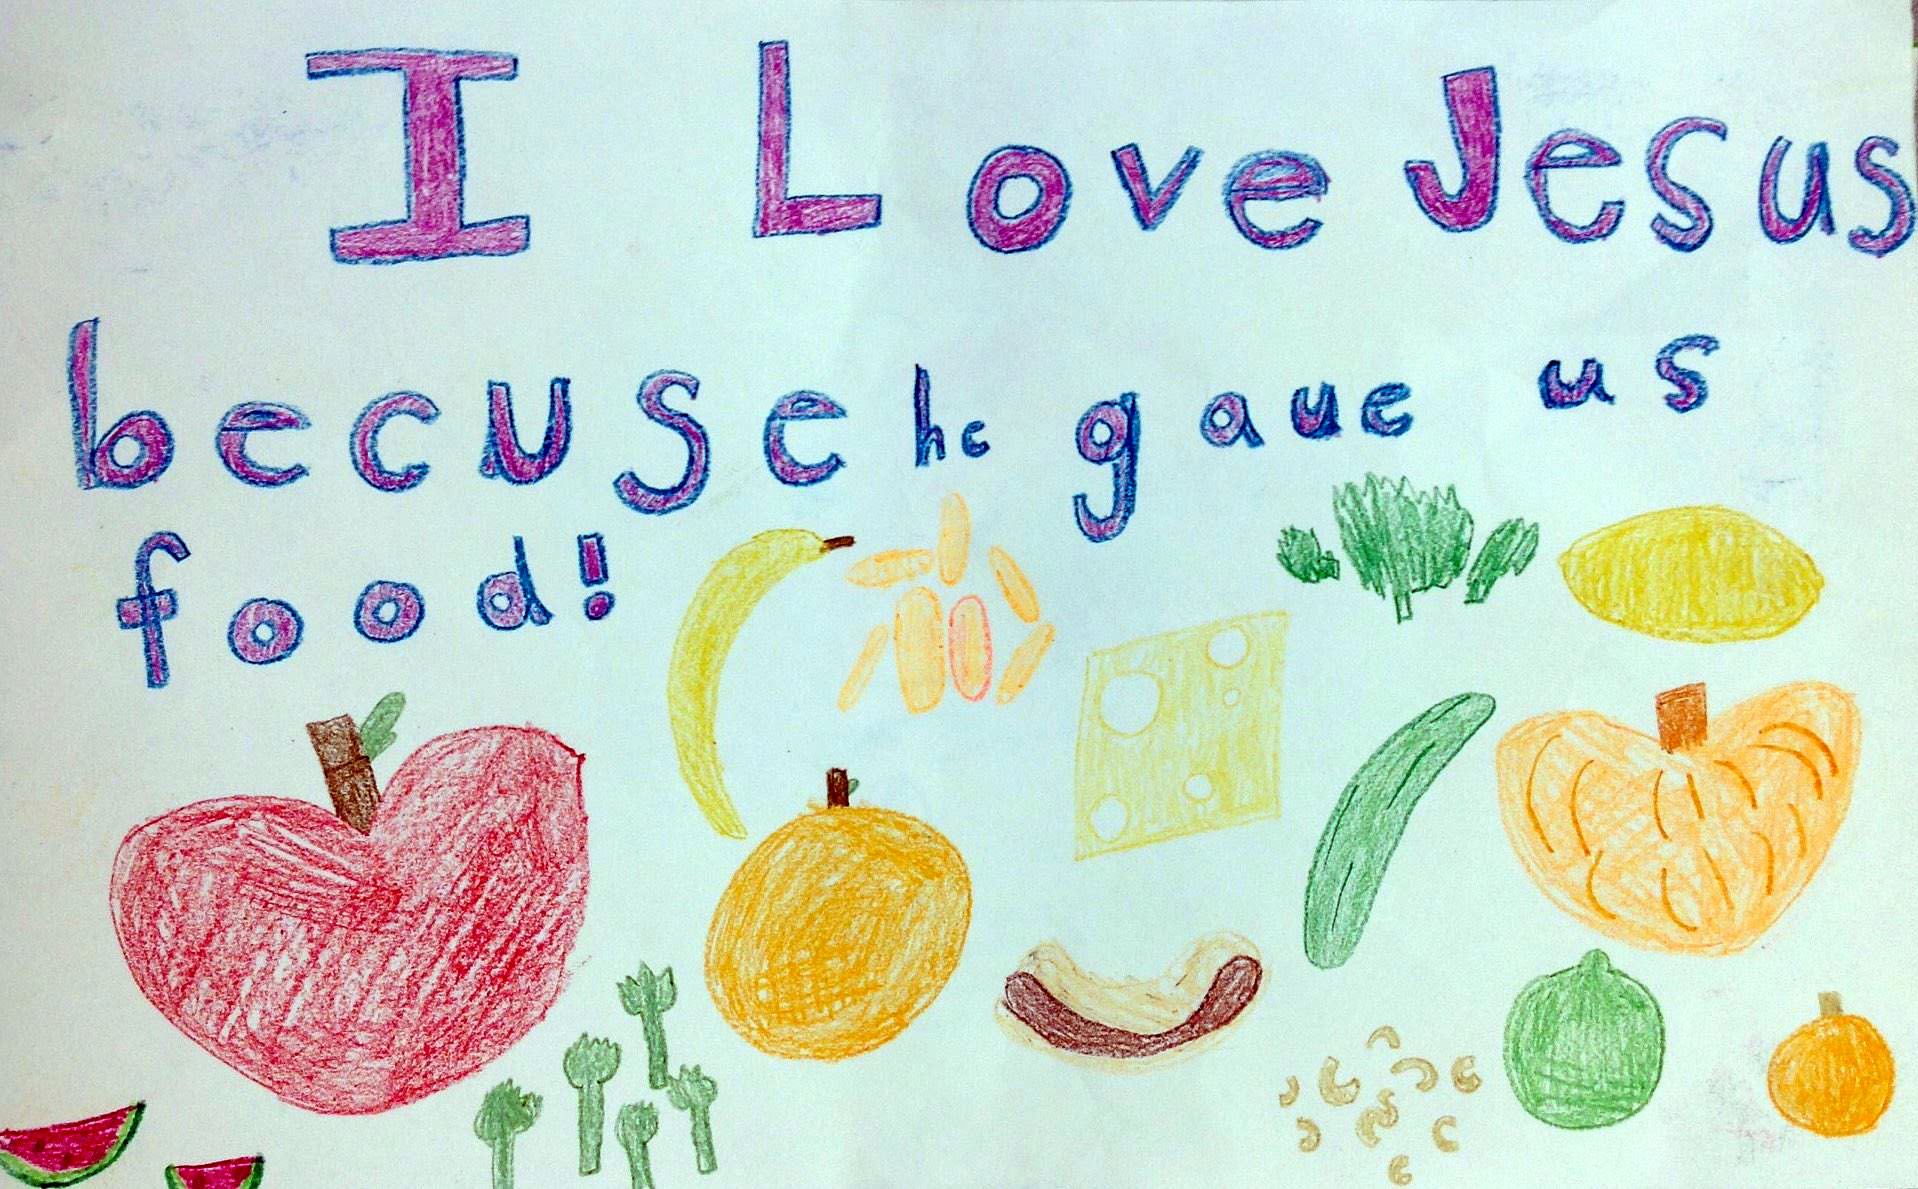 I Love Jesus
becuse he gave us
food!